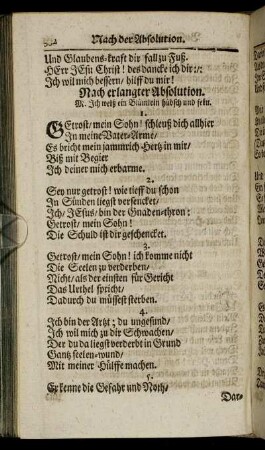 Nach der Absolution.
Und Glaubens-kraft dir fall zu Fuß.
HErr JEsu Christ! des dancke ich dir :/:
Jch wil mich bessern/ hilff du mir!
Nach erlangter Absolution.
M. Jch weiß ein Blümlein hübsch und fein.
1.
GEtrost/ mein Sohn! schleuß dich allhier
Jn meine Vater-Arme/
Es bricht mein jammrich-Hertz in mir/
Biß mit Begier
Jch deiner mich erbarme.
2.
Sey nur getrost! wie tieff du schon
Jn Sünden liegst versencket/
Jch/ JEsus/ bin der Gnaden-thron:
Getrost/ mein Sohn!
Die Schuld ist dir geschencket.
3.
Getrost/ mein Sohn! ich komme nicht
Die Seelen zu verderben/
Nicht/ als der einsten für Gericht
Das Urthel spricht/
Dadurch du müssest sterben.
4.
Jch bin der Artzt; du ungesund/
Jch wil mich zu dir Schwachen/
Der du da liegst verderbt in Grund
Gantz seelen-wund/
Mit meiner Hülffe machen.
5.
Erkenne die Gefahr und Noth/
Dar-